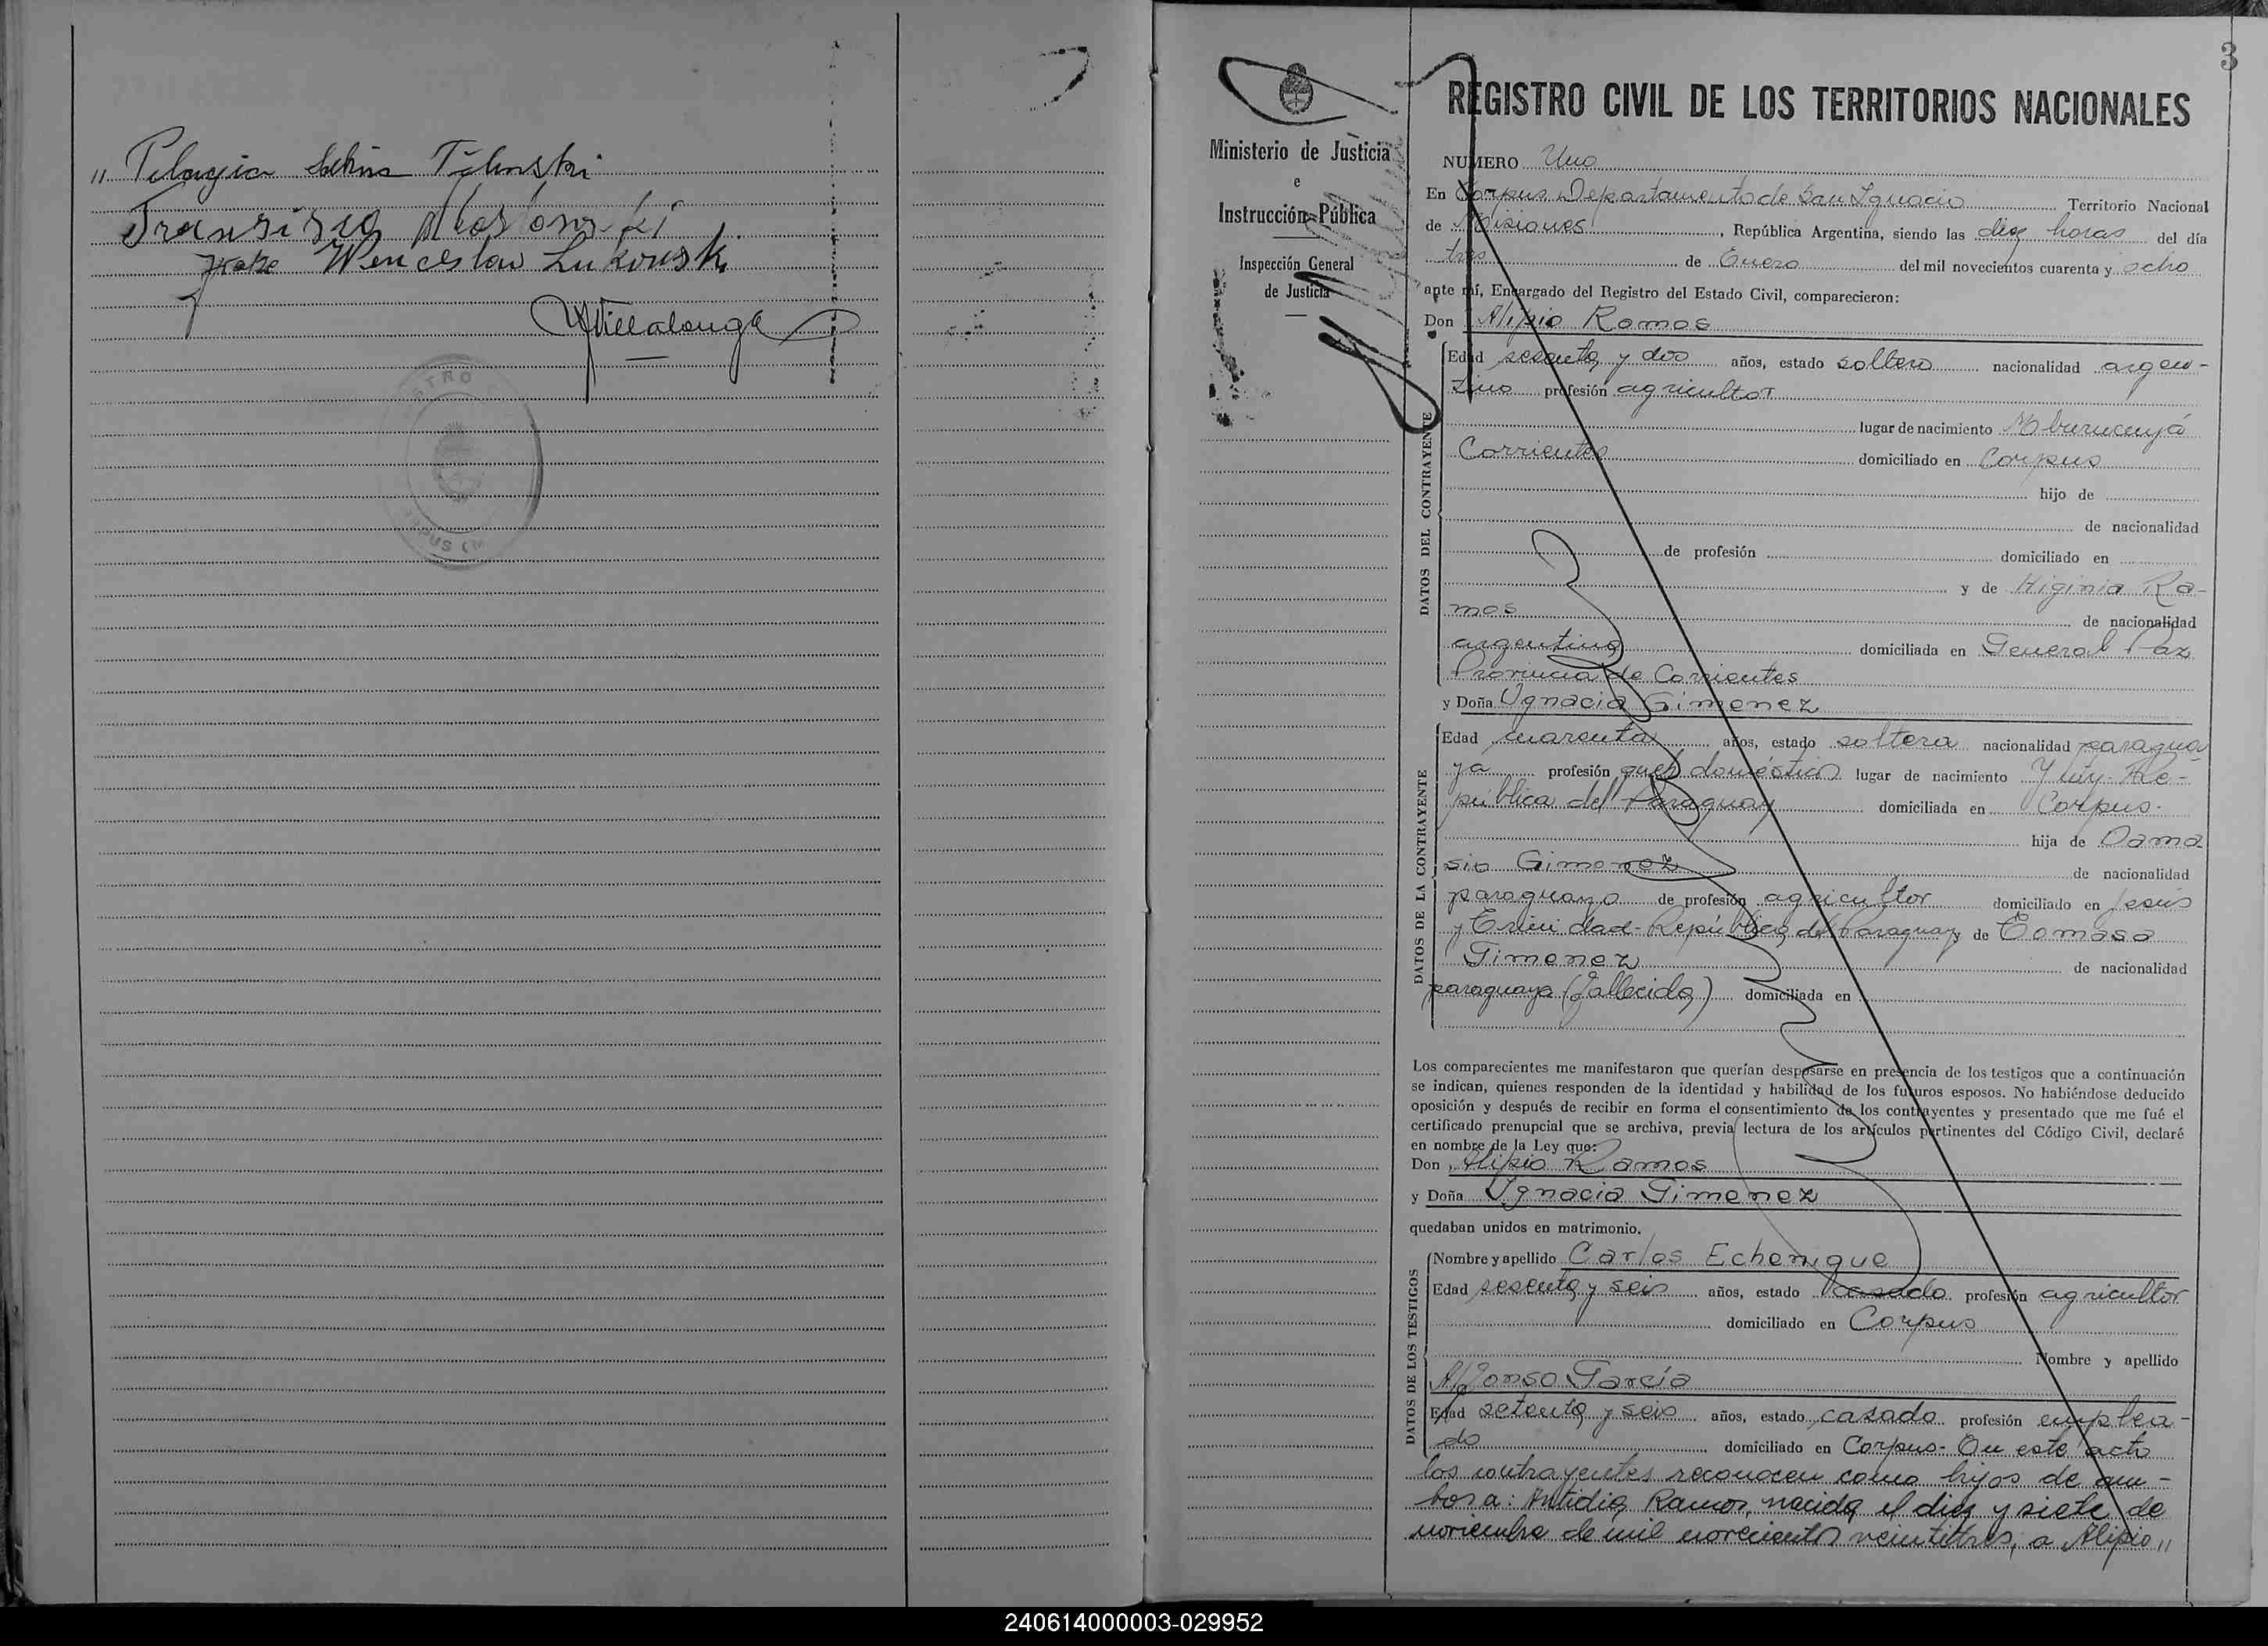 " Pelagia
Wenceslao Lukowski
Villalonga
3
Ministerio de Justicia
e
Instrucción Pública
Inspección General
de Justicia
REGISTRO CIVIL DE LOS TERRITORIOS NACIONALES
NUMERO Uno
En Corpus Departamento de San Ygnacio Territorio Nacional
de Misiones, República Argentina, siendo las diez horas del día
tres de Enero del mil novecientos cuarenta y ocho
ante mí, Encargado del Registro del Estado Civil, comparecieron:
Don Alipio Ramos
DATOS DEL CONTRAYENTE
Edad sesenta y dos años, estado soltero nacionalidad argen-
tino profesión agricultor
lugar de nacimiento Mburucuyá
Corrientes domiciliado en Corpus
hijo de
de nacionalidad
de profesión domiciliado en
y de Higinia Ra-
mos de nacionalidad
argentina domiciliada en General Paz
Provincia de Corrientes
y Doña Ygnacia Gimenez
DATOS DE LA CONTRAYENTE
Edad cuarenta años, estado soltera nacionalidad paragua
ya profesión queh domésticos lugar de nacimiento Yuty-Re-
pública del Paraguay domiciliada en Corpus-
hija de Dama
sio Gimenez de nacionalidad
paraguayo de profesión agricultor domiciliado en Jesús
y Trinidad-República del Paraguay y de Tomasa
Gimenez de nacionalidad
paraguaya (fallecida) domiciliada en
Los comparecientes me manifestaron que querían desposarse en presencia de los testigos que a continuación
se indican, quienes responden de la identidad y habilidad de los futuros esposos. No habiéndose deducido
oposición y después de recibir en forma el consentimiento de los contrayentes y presentado que me fué el
certificado prenupcial que se archiva, previa lectura de los artículos pertinentes del Código Civil, declaré
en nombre de la Ley que:
Don Alipio Ramos
y Doña Ygnacia Gimenez
quedaban unidos en matrimonio.
DATOS DE LOS TESTIGOS
Nombre y apellido Carlos Echenique
Edad sesenta y seis años, estado casado profesión agricultor
domiciliado en Corpus
Nombre y apellido
Alfonso García
Edad setenta y seis años, estado casado profesión emplea-
do domiciliado en Corpus- En este acto
los contrayentes reconocen como hijos de am-
bos a: Antidia Ramos, nacida el diez y siete de
noviembre de mil novecientos veintitres, a Alipio "
240614000003-029952